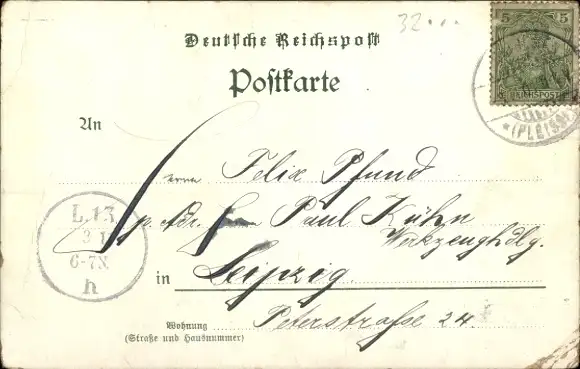 32...
Deutsche Reichspost
Postkarte
5 5
REICHSPOST
(PLEISSE
An
Herrn Felix Pfund
p. Adr. Herrn Paul Kühn
Werkzeughdlg.
L.13
3 1
6-7N
h
in Leipzig.
Wohnung
(Straße und Hausnummer)
Peterstrasse 24.